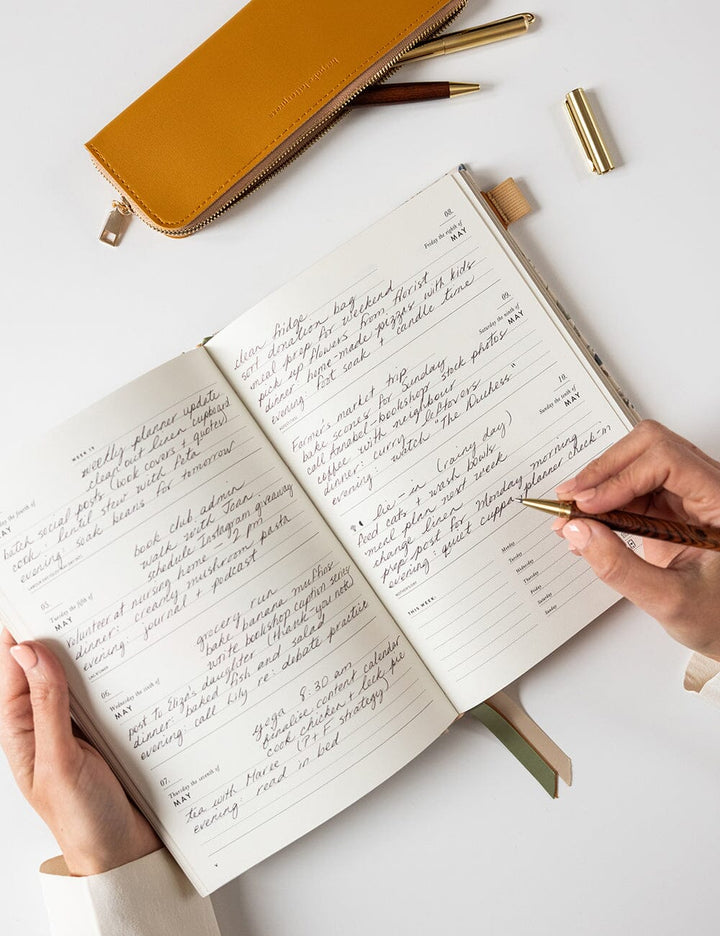 bespoke letterpress
WEEK 19
the fourth of
MAY
weekly planner update
clean out linen cupboard
batch social posts (book covers + quotes)
cook: lentil stew with pita
evening: soak beans for tomorrow
05.
Tuesday the fifth of
MAY
book club admin
walk with Joan
schedule Instagram giveaway
volunteer at nursing home - 2 pm
dinner: creamy mushroom pasta
evening: journal + podcast
06.
Wednesday the sixth of
MAY
grocery run
bake banana muffins
write bookshop caption series
post to Eliza's daughter (thank you note)
dinner: baked fish and salad
evening: call Lily re: debate practice
07.
Thursday the seventh of
MAY
yoga 8:30 am
finalise content calendar
cook chicken + leek pie
tea with Maree (P + F strategy)
evening: read in bed
08.
Friday the eighth of
MAY
clean fridge
sort donation bag
meal prep for weekend
pick up flowers from florist
dinner: home-made pizzas with kids
evening: foot soak + candle time
09.
Saturday the ninth of
MAY
Farmer's market trip
bake scones for Sunday
call Annabel - bookshop stock photos
coffee with neighbour
dinner: curry leftovers
evening: watch "The Duchess"
10.
Sunday the tenth of
MAY
lie-in (rainy day)
feed cats + wash bowls
meal plan next week
change linen
prep post for Monday morning
evening: quiet cuppa, planner check-in
THIS WEEK:
Monday
Tuesday
Wednesday
Thursday
Friday
Saturday
Sunday